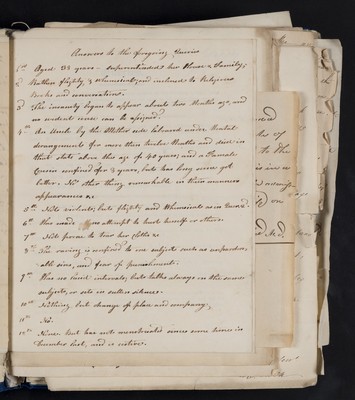 Answers to the foregoing Queries
1st Aged 33 years - superintended her House & Family;
2d Rather flighty & whimsical, and inclined to Religious
Books and conversation.
3d The insanity began to appear about two Months ago, and
no evident cause can be assigned.
4 An Uncle by the Mother side laboured under Mental
derangement for more than twelve Months and died in
that state above the age of 40 years; and a Female
Cousin confined for 3 years, but has long since got
better. No other thing remarkable in their manners
appearances &c.
5th Not violent; but flighty and Whimsical as in the 2nd
6th Has made no attempt to hurt herself or others
7th Not prone to tear her cloths &c
8th The raving is confined to one subject such as
sins, and fear of punishment.
9th Has no lucid intervals; but talks always on the same
subjects, or sits in sullen silence.
10th Nothing but change of place and company.
11th No.
12th None. But has not menstruated since some time in
December last, and is costive.